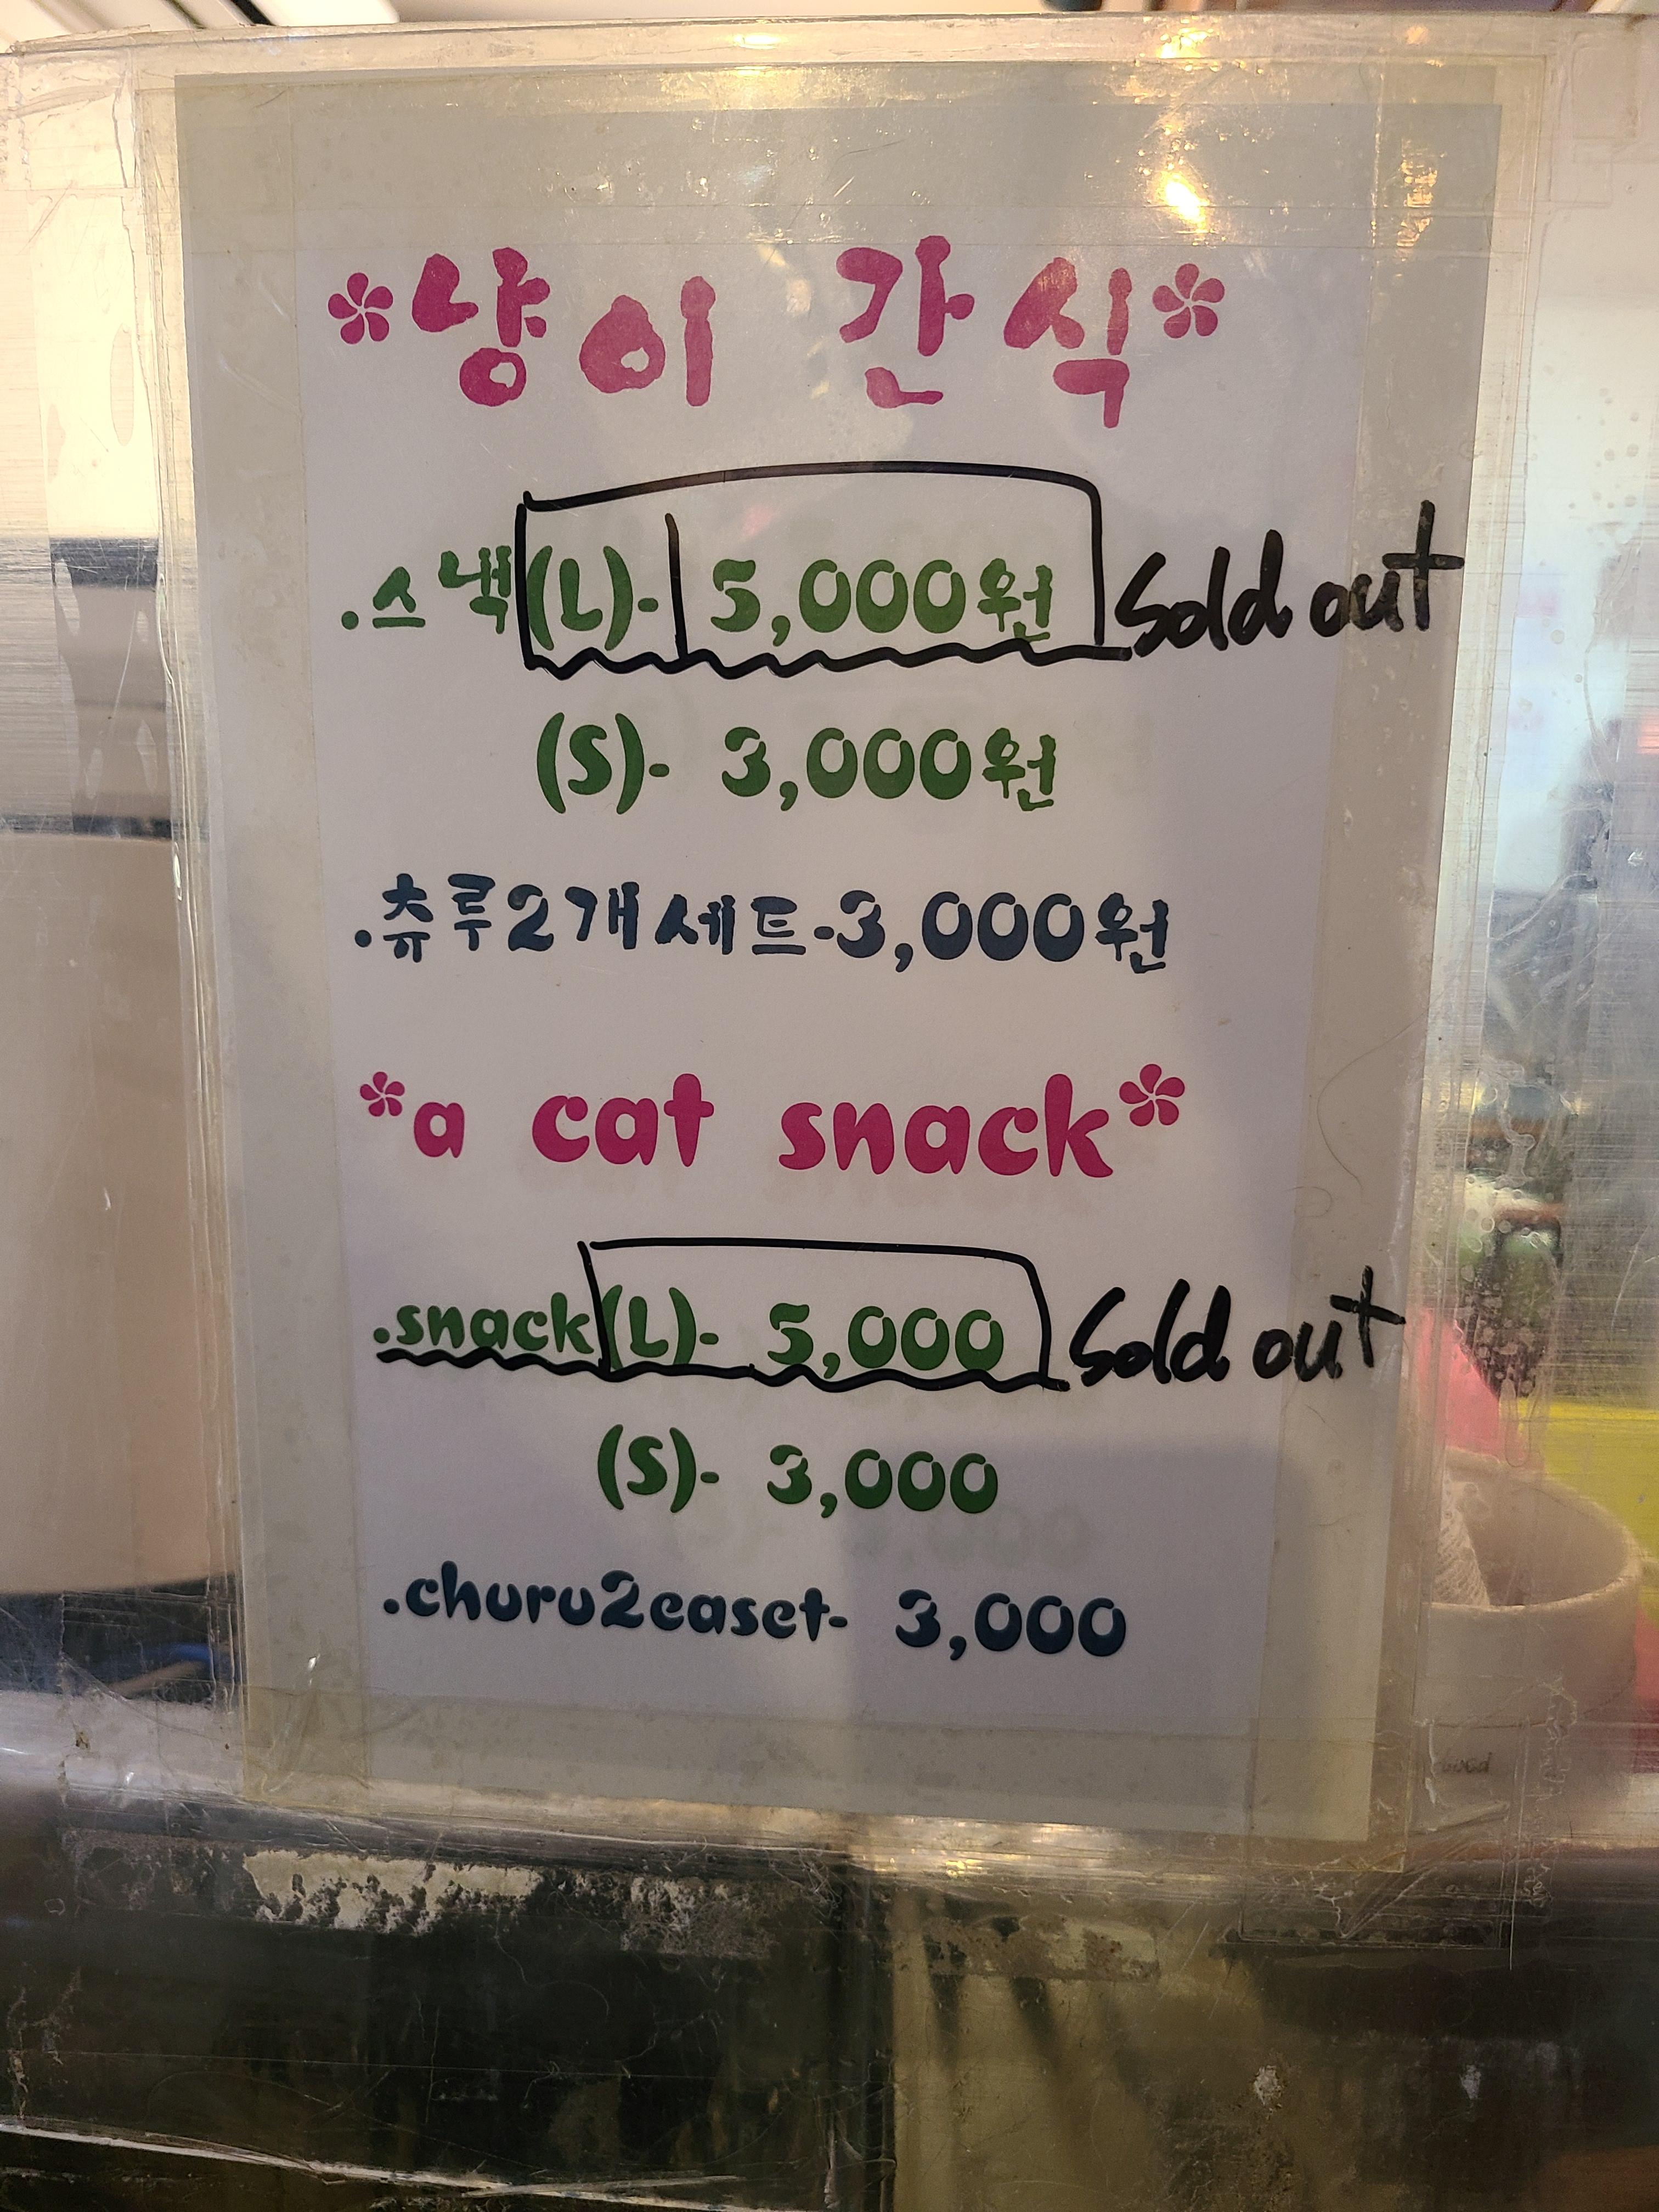 *냥이 간식*
.스낵(L)- 5,000원 Sold out
(S)- 3,000원
.츄루2개세트-3,000원
*a cat snack*
.snack(L)- 5,000 Sold out
(S)- 3,000
.churu2easet- 3,000